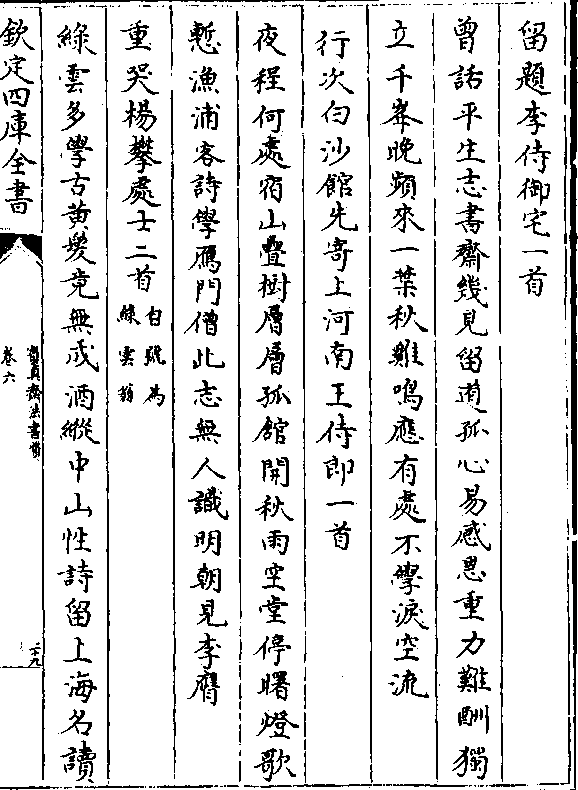 留題李侍御宅一首
曾話平生志書齋幾見留道孤心易感恩重力難酬獨
立千峯晚頻來一葉秋雞鳴應有處不學淚空流
行次白沙館先寄上河南王侍郎一首
夜程何處宿山疊樹層層孤館開秋雨空堂停曙燈歌
慙漁浦客詩學鴈門僧此志無人識明朝見李膺
重哭楊攀處士二首
自號為
綠雲翁
綠雲多學古黄髮竟無成酒縱中山性詩留上海名讀
欽定四庫全書
寶真齋法書贊
卷六
二十九